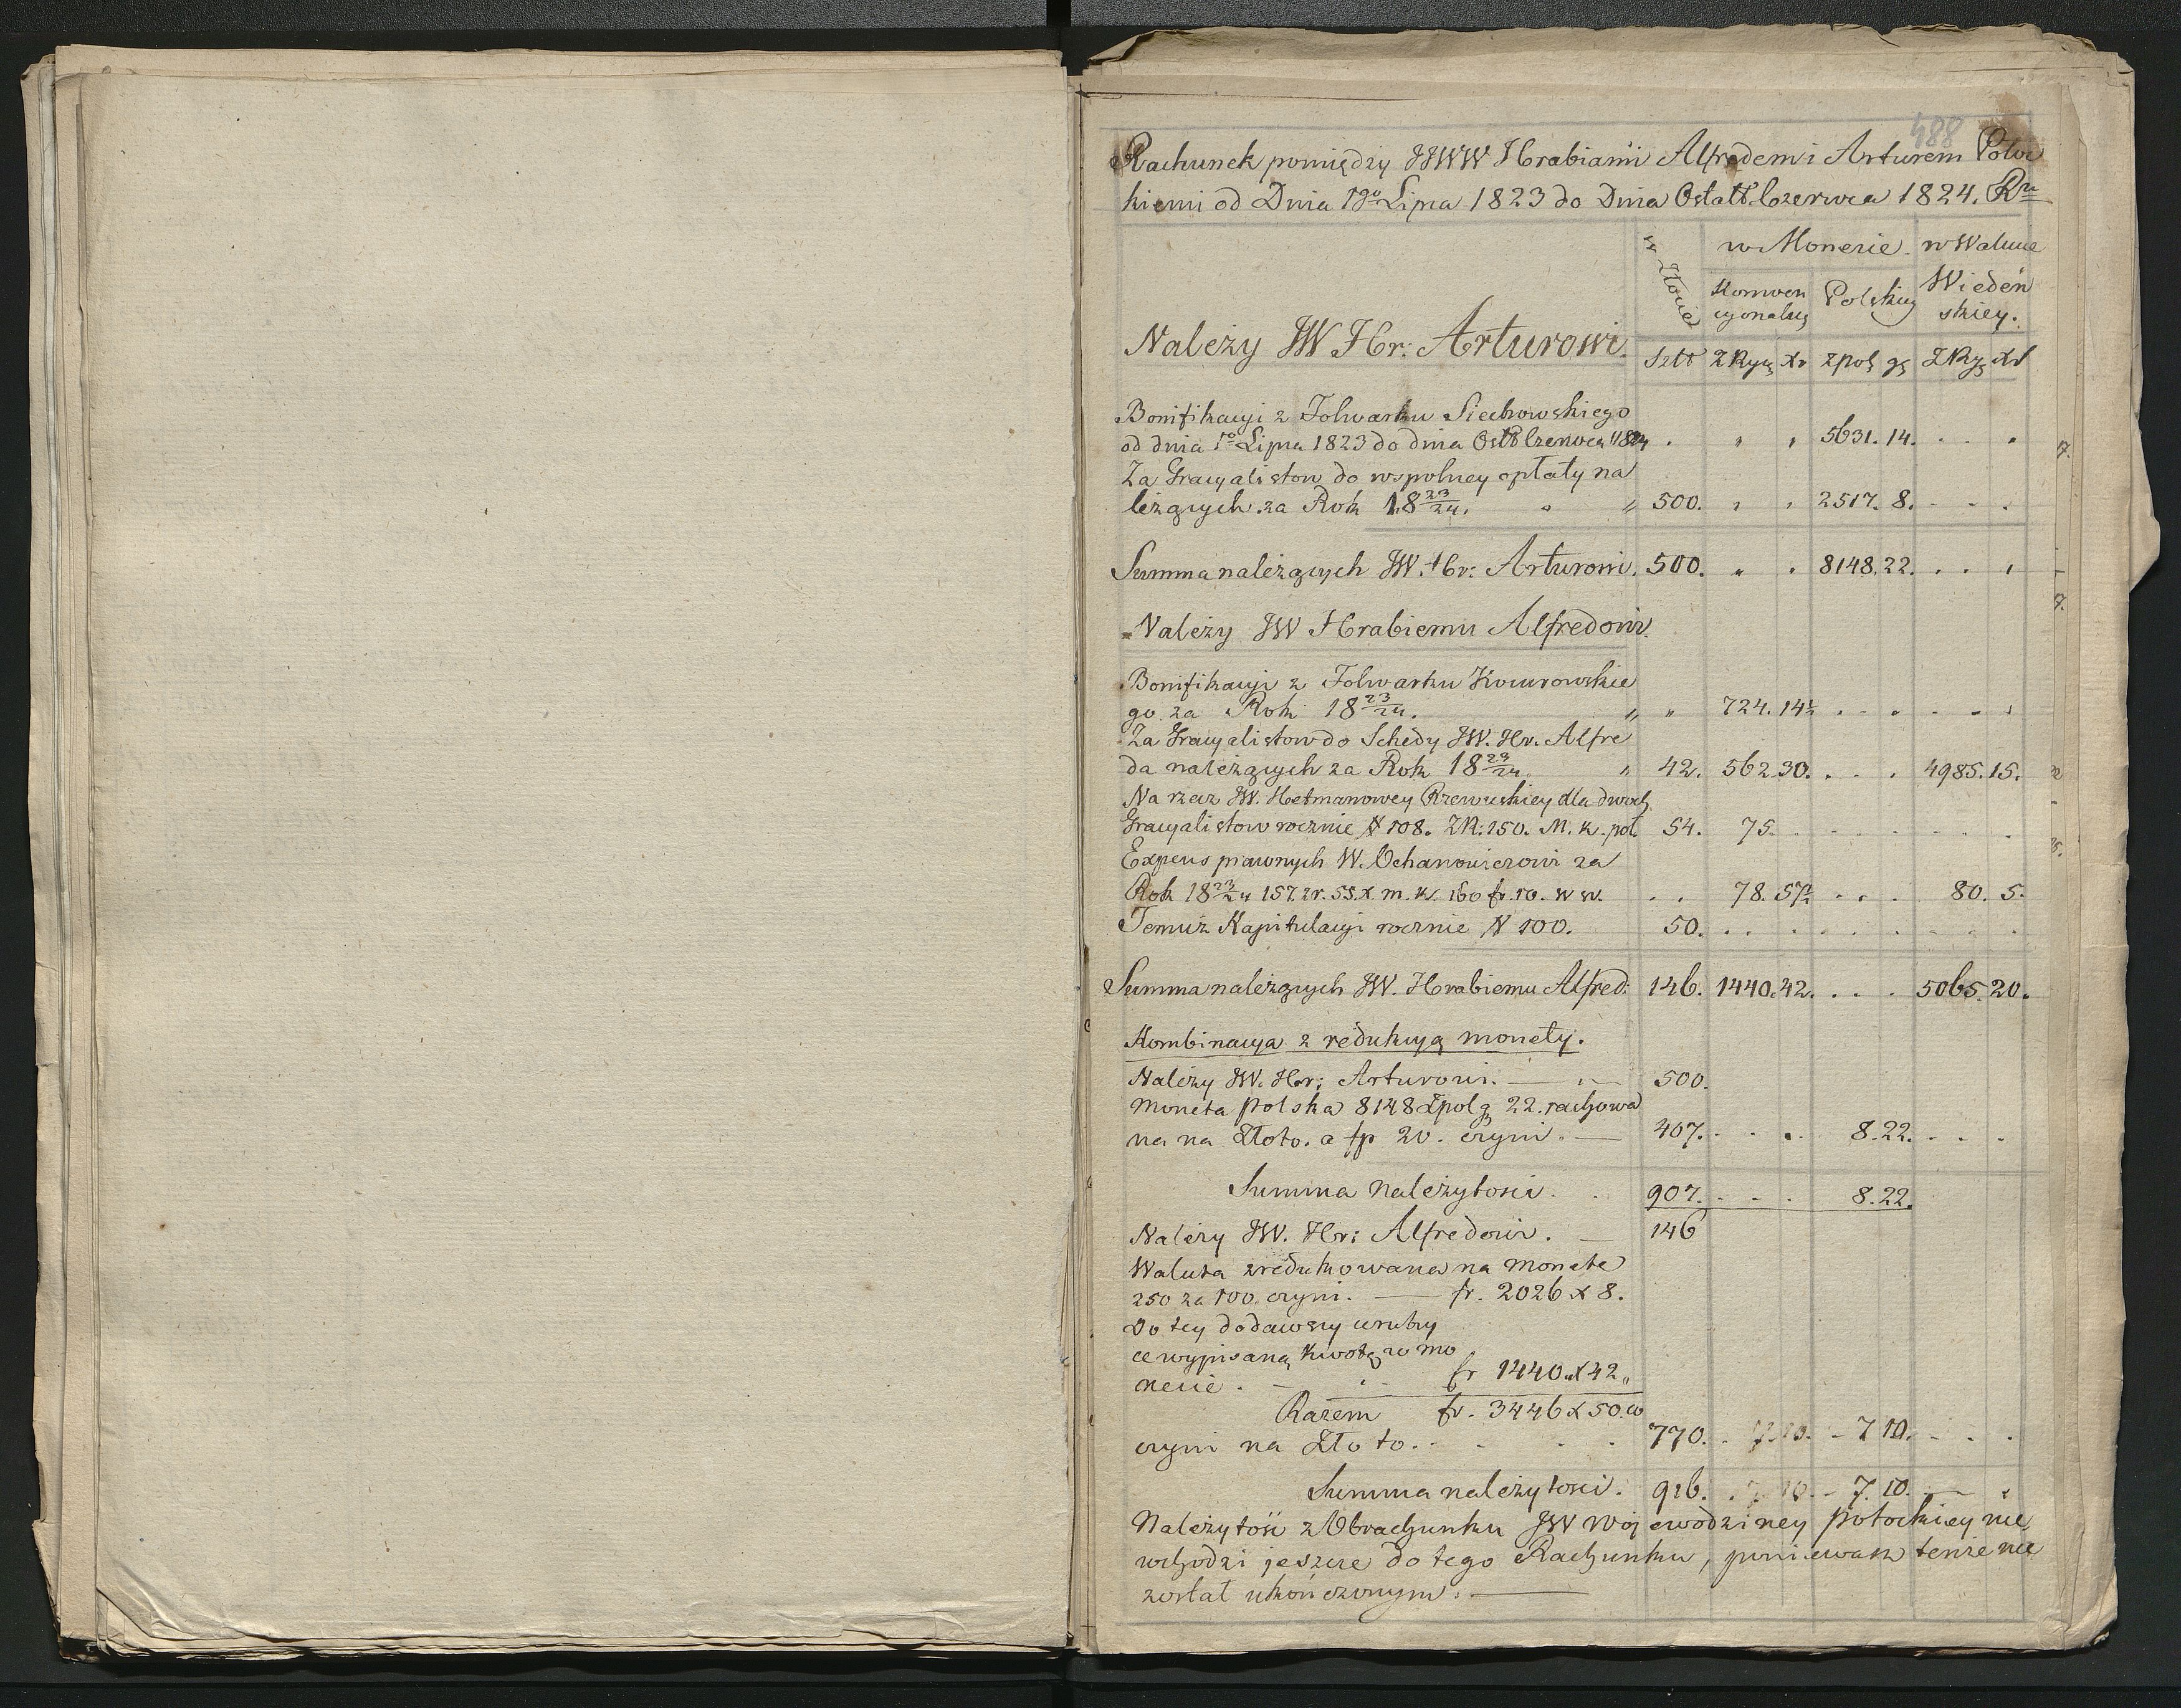 488
Rachunek pomiędzy JJWW Hrabiami Alfredem i Arturem Potoc
kiemi od Dnia 1go Lipca 1823 do Dnia Ostatt. Czerwca 1824. Rku
w Złocie
w Monecie. w Walucie
Konwen cyonalney
Polskiey
Wiedeń skiey.
Należy JW Hr: Arturowi.
Sztt ZRyn Xr zpol g ZRy Xr
Bonifikacyi z Folwarku Siechowskiego
od dnia 1o Lipca 1823 do dnia Ostt Czerwca 1824 . " " 5631. 14. . . .
Za Gracyalistow do wspolney opłaty na
leżących za Rok 18 23/24. " " 500. " " 2517. 8. - - .
Summa należących JW. Hr: Arturowi. 500. " . 8148. 22. . . .
Należy JW Hrabiemu Alfredowi.
Bonifikacyi z Folwarku Komrowskie
go za Rok 18 23/24. " " 724. 14½ . - . - - .
Za Gracyalistow do Schedy JW. Hr. Alfre
da należących za Rok 18 23/24 " 42. 562. 30. . . . 4985. 15.
Na rzecz JW. Hetmanowey Rzewuskiey dla dwoch
Gracyalistow rocznie # 108. ZR: 150. M. K. poł. 54. 75.
Expens prawnych W. Ochanowiczowi za
Rok 18 23/24 157. zr. 55. X. m. K. 160 fr. 10. w w. . . 78. 57½ . . . 80. 5.
Temuż Kapitulacyi rocznie # 100. 50. . . .
Summa należących JW. Hrabiemu Alfred: 146. 1440. 42. . . . 5065. 20.
Kombinacya z redukcyą monety.
Należy JW. Hr: Arturowi. — 500.
Moneta polska 8148 Zpol g 22. rachowa
na na Złoto. a fp 20. czyni. — 407. - . . 8. 22. . . .
Summa Należytości. . 907. - - . 8. 22.
Należy JW. Hr: Alfredowi. — 146
Waluta zredukowana na Monete
250 za 100. czyni. — fr. 2026 X 8.
Do tey dodawszy w rubry
ce wypisaną kwotę w mo
necie. - . - fr 1440. X 42 "
Razem fr. 3446 X 50. co
czyni na Złoto. . - . . 770. . 7. 10. - 7 10. - . .
Summa należytości. 916. . 7 10. - 7. 10. —
Należytość z Obrachunku JW Wojewodziney Potockiey nie
wchodzi jeszcze do tego Rachunku, poniewasz tenże nie
został ukończonym. —